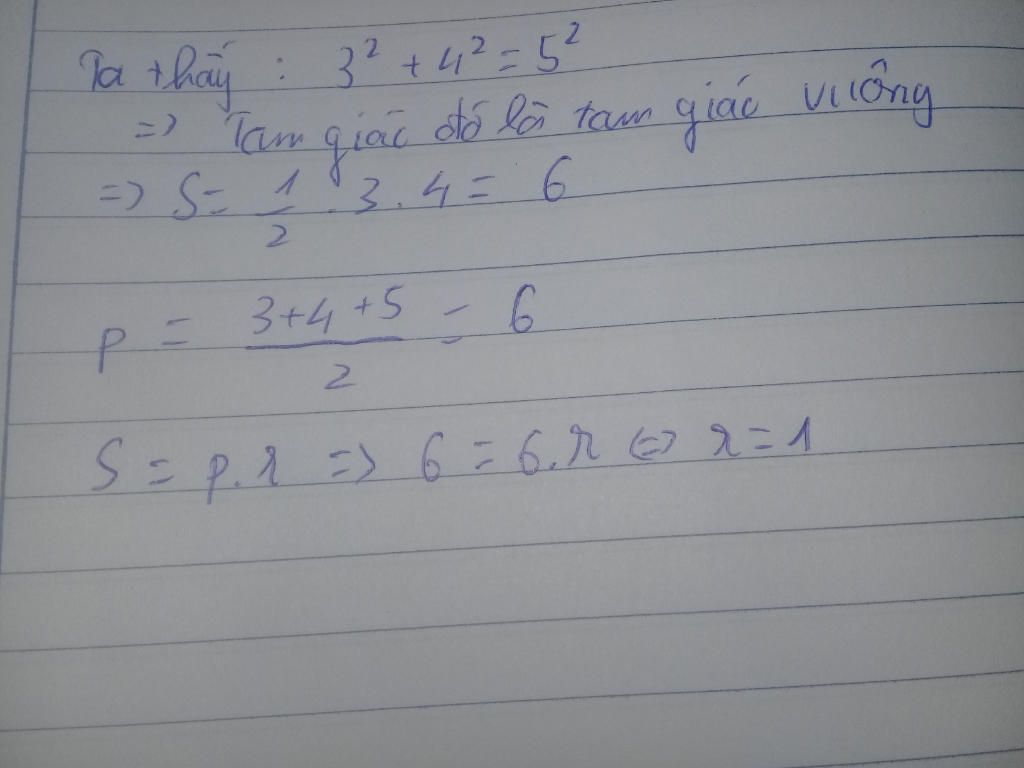 Ta thấy : 3² + 4² = 5²
=> Tam giác đó là tam giác vuông
=> S = 1/2 . 3 . 4 = 6
p = (3+4+5)/2 = 6
S = p.r => 6 = 6.r <=> r = 1